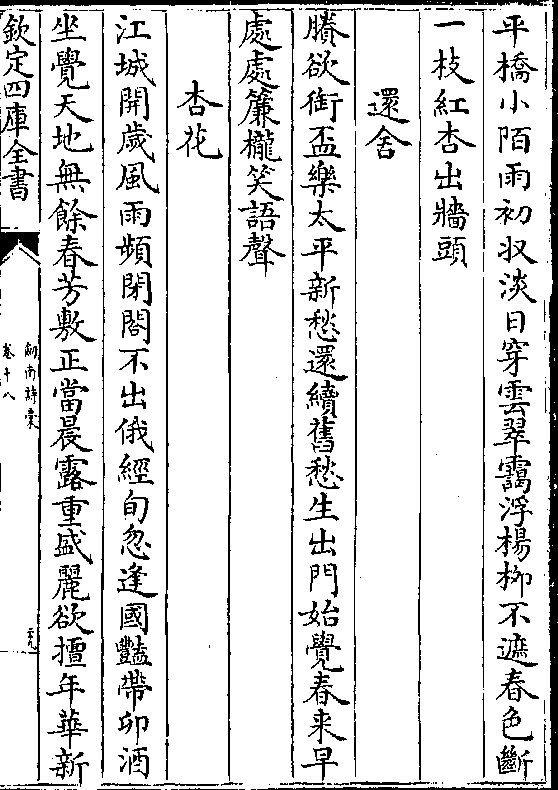 平橋小陌雨初収淡日穿雲翠靄浮楊栁不遮春色斷
一枝紅杏出牆頭
還舍
賸欲銜盃樂太平新愁還續舊愁生出門始覺春来早
處處簾櫳笑語聲
杏花
江城開歲風雨頻閉閤不出俄經旬忽逢國豔帶卯酒
坐覺天地無餘春芳敷正當晨露重盛麗欲擅年華新
欽定四庫全書
劍南詩稾
卷十八